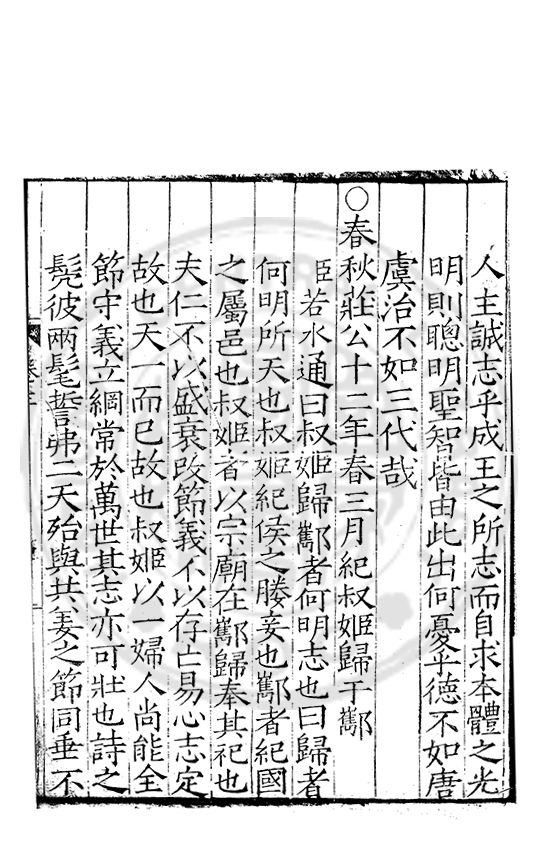 人主誠志乎成王之所志而自求本體之光
明則聰明聖智皆由此出何憂乎德不如唐
虞治不如三代哉
○春秋莊公十二年春三月紀叔姬歸于酅
臣若水通曰叔姬歸酅者何明志也曰歸者
何明所天也叔姬紀侯之媵妾也酅者紀國
之屬邑也叔姬者以宗廟在酅歸奉其祀也
夫仁不以盛衰改節義不以存亡易心志定
故也天一而已故也叔姬以一婦人尚能全
節守義立綱常於萬世其志亦可壯也詩之
髧彼兩髦誓弗二天殆與共姜之節同垂不